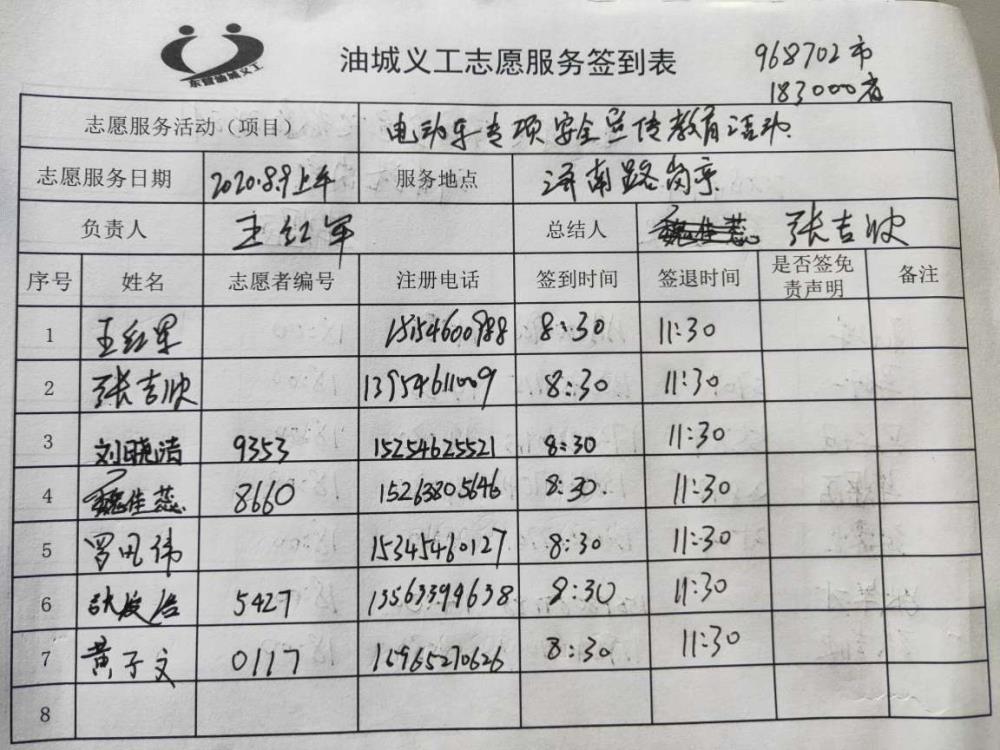 东营油城义工
油城义工志愿服务签到表
968702市
183000省
志愿服务活动（项目） 电动车专项安全宣传教育活动
志愿服务日期 2020.8.9上午 服务地点 济南路岗亭
负责人 王红军 总结人 魏佳蕊 张吉欣
序号 姓名 志愿者编号 注册电话 签到时间 签退时间 是否签免责声明 备注
1 王红军 15154600988 8:30 11:30
2 张吉欣 13954611009 8:30 11:30
3 刘晓洁 9353 15254625521 8:30 11:30
4 魏佳蕊 8660 15263805646 8:30 11:30
5 罗 伟 15345460127 8:30 11:30
6 张 5427 13563394638 8:30 11:30
7 黄子文 0117 15965270626 8:30 11:30
8